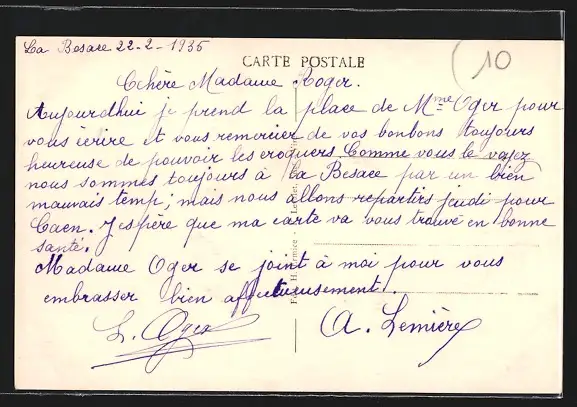 La Besace 22-2-1936
CARTE POSTALE
(10
Chère Madame Roger.
Aujourdhui je prend la place de Mme Oger pour
vous écrire et vous remercier de vos bonbons toujours
heureuse de pouvoir les croquers Comme vous le voyez
nous sommes toujours à La Besace par un bien
mauvais temp, mais nous allons repartirs jeudi pour
Caen. J'espère que ma carte va vous trouvé en bonne
santé.
Madame Oger se joint à moi pour vous
embrasser bien affectueusement.
L. Oger
A. Lemière